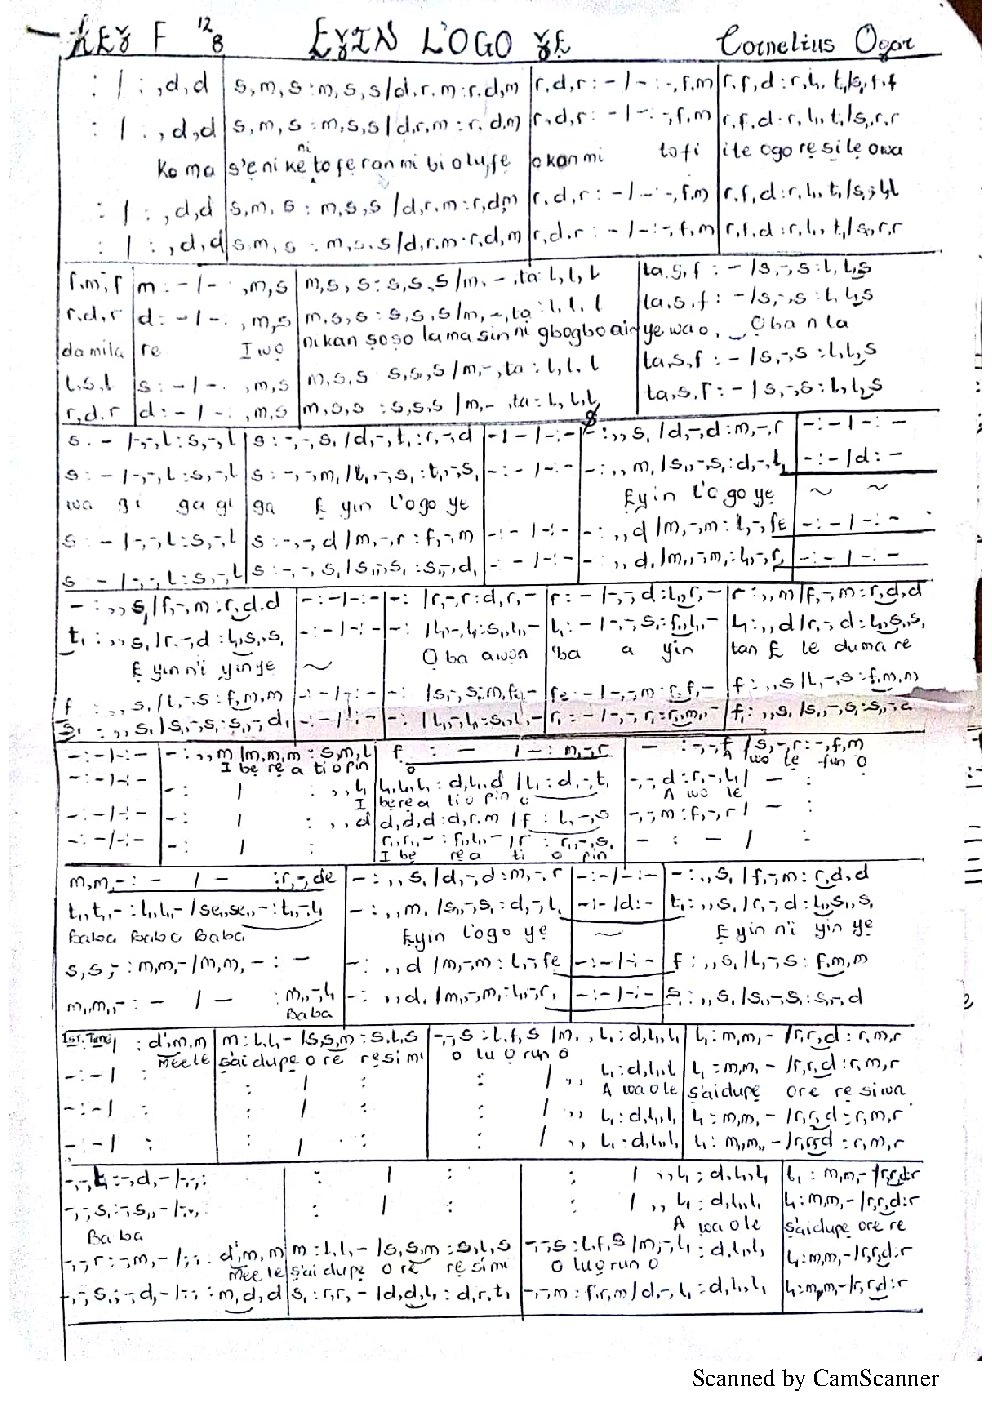 KEY F 12/8 EYIN L'OGO YE Cornelius Ogar
: | : ,d,d | s,m,s:m,s,s/d,r,m:r,d,m | r,d,r:-/-:-,f,m | r,f,d:r,l,t,/s,f,f
: | : ,d,d | s,m,s:m,s,s/d,r,m:r,d,m | r,d,r:-/-:-,f,m | r,f,d:r,l,t,/s,r,r
Ko ma s'e ni ke ni to feran mi bi olufe okan mi to fi ile ogo re si le owa
: | : ,d,d | s,m,s:m,s,s/d,r,m:r,d,m | r,d,r:-/-:-,f,m | r,f,d:r,l,t,/s,l,l
: | : ,d,d | s,m,s:m,s,s/d,r,m:r,d,m | r,d,r:-/-:-,f,m | r,f,d:r,l,t,/s,r,r
f,m,f | m:-/-: ,m,s | m,s,s:s,s,s/m,-,ta:l,l,l | ta,s,f:-/s,-,s:l,l,s
r,d,r | d:-/-: ,m,s | m,s,s:s,s,s/m,-,ta:l,l,l | ta,s,f:-/s,-,s:l,l,s
da mi la re Iwo nikan soso lama sin ni gbogbo ain ye wa o, Oba n la
l,s,l | s:-/-: ,m,s | m,s,s s,s,s/m,-,ta:l,l,l | ta,s,f:-/s,-,s:l,l,s
r,d,r | d:-/-: ,m,s | m,s,s:s,s,s/m,-,ta:l,l,l | ta,s,f:-/s,-,s:l,l,s
s:-/-,-,l:s,-,l | s:-,-,s,/d,-,t,:r,-,d | -:-/-:- | -:,,s,/d,-,d:m,-,r | -:-/-:-
s:-/-,-,l:s,-,l | s:-,-,m,/l,-,s,:t,-,s, | -:-/-:- | -:,,m,/s,-,s,:d,-,l, | -:-/d:-
wa gi ga gi ga E yin l'ogo ye Eyin l'ogo ye
s:-/-,-,l:s,-,l | s:-,-,d/m,-,r:f,-,m | -:-/-:- | -:,,d/m,-,m:l,-,fe | -:-/-:-
s:-/-,-,l:s,-,l | s:-,-,s,/s,-,s,:s,-,d, | -:-/-:- | -:,,d,/m,-,m,:l,-,r, | -:-/-:-
-:,,s,/f,-,m:r,d,d | -:-/-:- | -:/r,-,r:d,r,- | r:-/-,-,d:l,r,- | r:,,m/f,-,m:r,d,d
t,:,,s,/r,-,d:l,s,s, | -:-/-:- | -:/l,-,l,:s,l,- | l,:-/-,-,s,:f,l,- | l,:,,d/r,-,d:l,s,s,
E yin n'i yin ye Oba awon 'ba a yin tan E le dumare
f:,,s,/t,-,s:f,m,m | -:-/-:- | -:/s,-,s:m,fe,- | fe:-/-,-,m:r,f,- | f:,,s/l,-,s:f,m,m
s,:,,s,/s,-,s,:s,-,d, | -:-/-:- | -:/l,-,l,:s,l,- | r,:-/-,-,r,:r,m,- | f,:,,s,/s,-,s,:s,-,d
-:-/-:- | -:,,m/m,m,m:s,m,l | f:-/-:m,-,r | -:-,-,f/s,-,r:-,f,m
I bere a ti opin o A wo le fun O
-:-/-:- | -: / : ,,l, | l,l,l,:d,l,d/l,:d,-,t, | -,-,d:r,-,l,/-:
I bere a ti o pin o A wo le
-:-/-:- | -: / : ,,d | d,d,d:d,r,m/f:l,-,s | -,-,m:f,-,r/-:
-:-/-:- | : / : | r,r,-:f,l,-/r:r,-,s, | -:-/:
I be re a ti o pin
m,m,-:-/-:r,-,de | -:,,s,/d,-,d:m,-,r | -:-/-:- | -:,,s,/f,-,m:r,d,d
t,t,-:l,l,-/se,se,-:t,-,l, | -:,,m,/s,-,s,:d,-,l, | -:-/d:- | t,:,,s,/r,-,d:l,s,s,
Baba Baba Baba Eyin l'ogo ye Eyin n'i yin ye
s,s,-:m,m,-/m,m,-:- | -:,,d/m,-,m:l,-,fe | -:-/-:- | f:,,s,/l,-,s:f,m,m
m,m,-:-/-:m,-,l, | -:,,d,/m,-,m,:l,-,r, | -:-/-:- | s,:,,s,/s,-,s,:s,-,d
Baba
1st. Tune | : d',m,m | m:l,l,-/s,s,m:s,l,s | -,-,s:l,f,s/m,,l,:d,l,l, | l,:m,m,-/r,r,d:r,m,r
Mee le s'ai dupe ore re simi o lu o run o
-:-/ : | : / : | : / ,,l,:d,l,l | l,:m,m,-/r,r,d:r,m,r
A wa o le s'ai dupe ore re si wa
-:-/ : | : / : | : / ,,l,:d,l,l, | l,:m,m,-/r,r,d:r,m,r
-:-/ : | : / : | : / ,,l,:d,l,l, | l,:m,m,-/r,r,d:r,m,r
-,-,t,:-,d,-/-,-: | : / : | : / ,,l,:d,l,l, | l,:m,m,-/r,r,d:r
-,-,s,:-,s,-/-,-: | : / : | : / ,,l,:d,l,l, | l,:m,m,-/r,r,d:r
Ba ba A wa o le s'ai dupe ore re
-,-,r:-,m,-/-,-:d',m,m | m:l,l,-/s,s,m:s,l,s | -,-,s:l,f,s/m,-,l,:d,l,l, | l,:m,m,-/r,r,d:r
Mee le s'ai dupe ore re simi o lu o run o
-,-,s,:-,d,-/-,-:m,d,d | s,:r,r,-/d,d,l,:d,r,t, | -,-,m:f,r,m/d,-,l,:d,l,l, | l,:m,m,-/r,r,d:r
Scanned by CamScanner